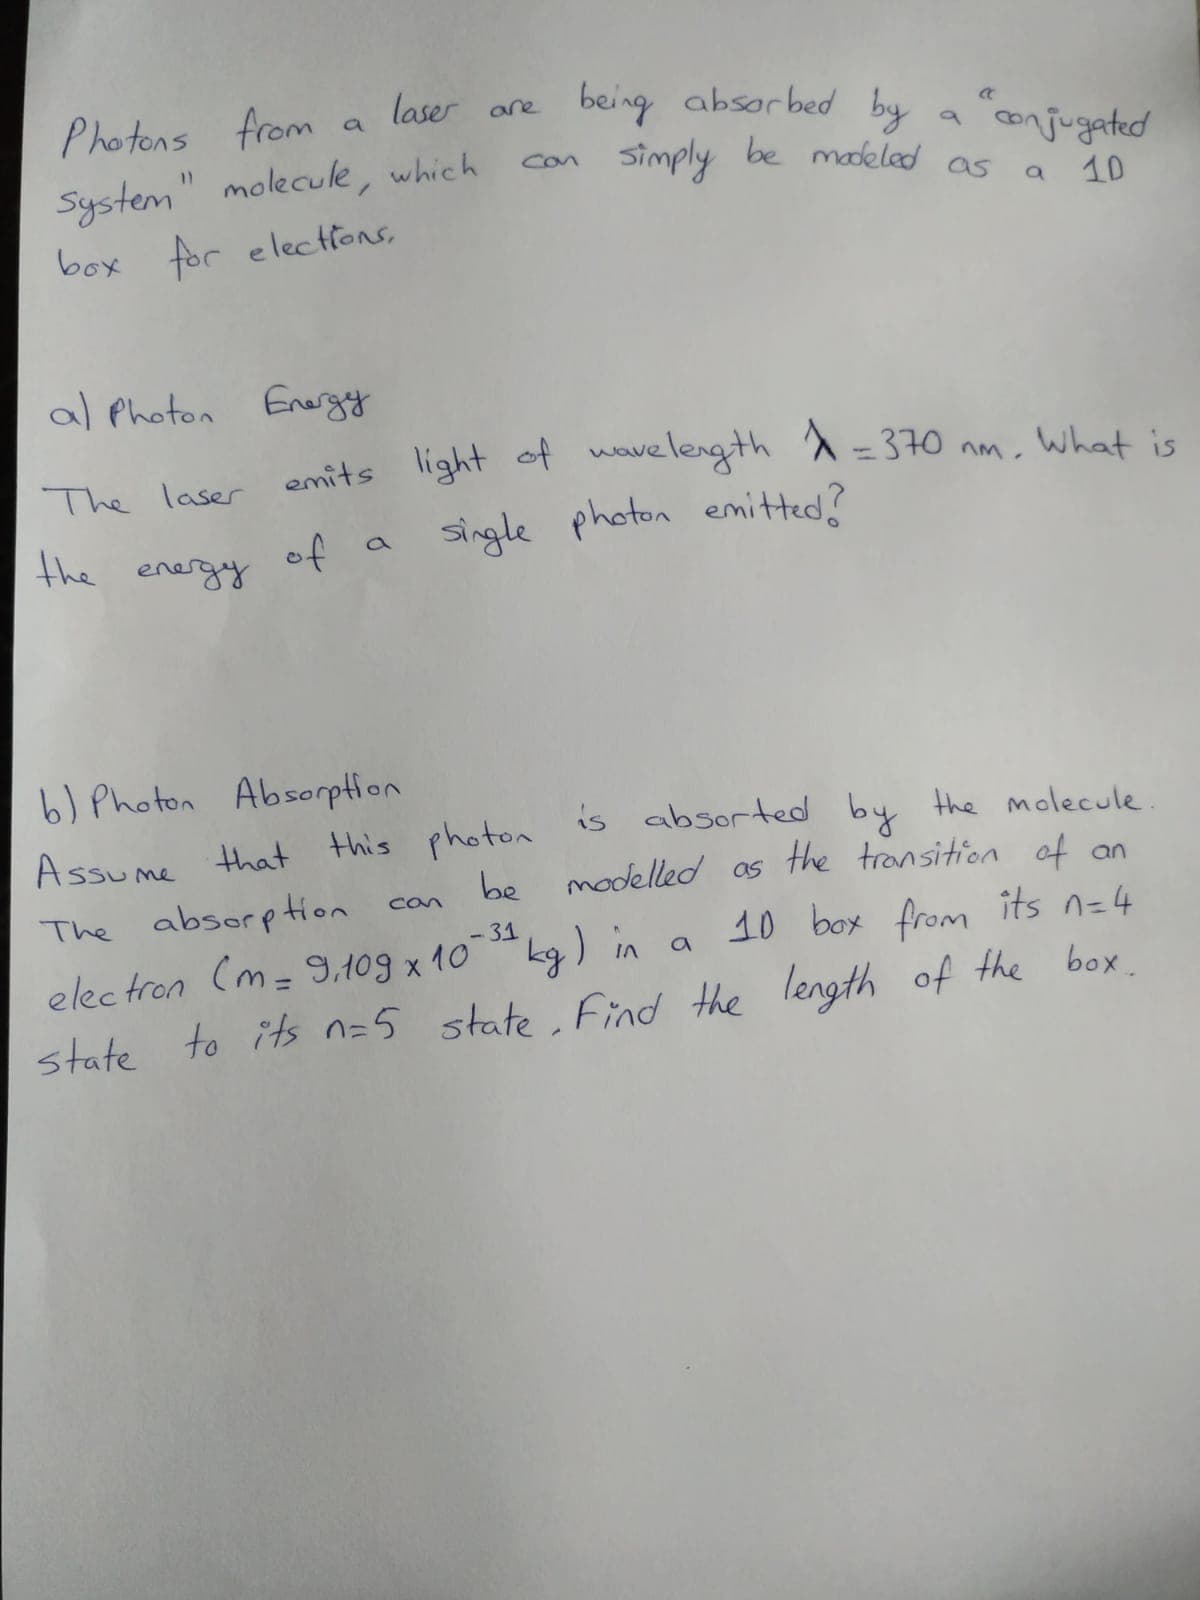 Photons from a laser are being absorbed by a "conjugated
system" molecule, which can simply be modeled as a 1D
box for electrons.
a) Photon Energy
The laser emits light of wavelength λ = 370 nm. What is
the energy of a single photon emitted?
b) Photon Absorption
Assume that this photon is absorted by the molecule.
The absorption can be modelled as the transition of an
electron (m = 9,109 x 10⁻³¹ kg) in a 1D box from its n=4
state to its n=5 state. Find the length of the box.